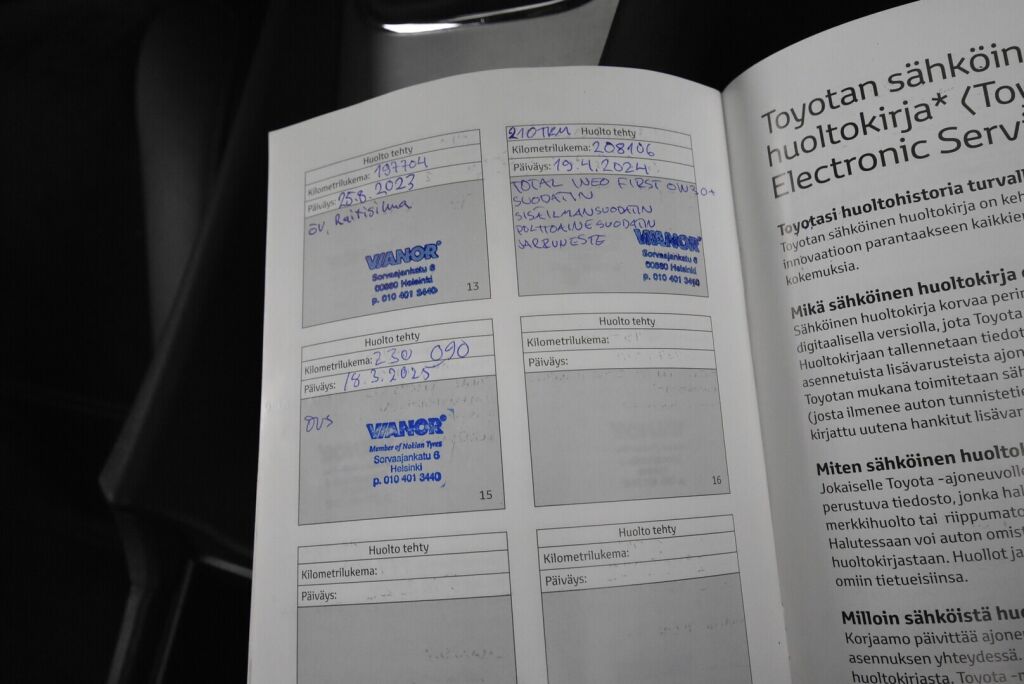 Huolto tehty
Kilometrilukema: 197704
Päiväys: 25.8.2023
ÖV, Raitisilma
VIANOR
Sorvaajankatu 6
00880 Helsinki
p. 010 401 3440
13
210TKM Huolto tehty
Kilometrilukema: 208106
Päiväys: 19.4.2024
TOTAL INEO FIRST 0W30+
SUODATIN
SISÄILMANSUODATIN
POLTTOAINESUODATIN
JARRUNESTE
VIANOR
Sorvaajankatu 6
00880 Helsinki
p. 010 401 3440
Huolto tehty
Kilometrilukema: 230 090
Päiväys: 18.3.2025
ÖVS
VIANOR
Member of Nokian Tyres
Sorvaajankatu 6
Helsinki
p. 010 401 3440
15
Huolto tehty
Kilometrilukema:
Päiväys:
16
Huolto tehty
Kilometrilukema:
Päiväys:
Huolto tehty
Kilometrilukema:
Päiväys:
Toyotan sähköin
huoltokirja* (Toy
Electronic Servi
Toyotasi huoltohistoria turvall
Toyotan sähköinen huoltokirja on keh
innovaatioon parantaakseen kaikkien
kokemuksia.
Mikä sähköinen huoltokirja o
Sähköinen huoltokirja korvaa perin
digitaalisella versiolla, jota Toyota
Huoltokirjaan tallennetaan tiedot
asennetuista lisävarusteista ajon
Toyotan mukana toimitetaan säh
(josta ilmenee auton tunnistetie
kirjattu uutena hankitut lisävar
Miten sähköinen huoltok
Jokaiselle Toyota -ajoneuvolle
perustuva tiedosto, jonka hal
merkkihuolto tai riippumato
Halutessaan voi auton omist
huoltokirjastaan. Huollot ja
omiin tietueisiinsa.
Milloin sähköistä huo
Korjaamo päivittää ajone
asennuksen yhteydessä.
huoltokirjasta. Toyota -m